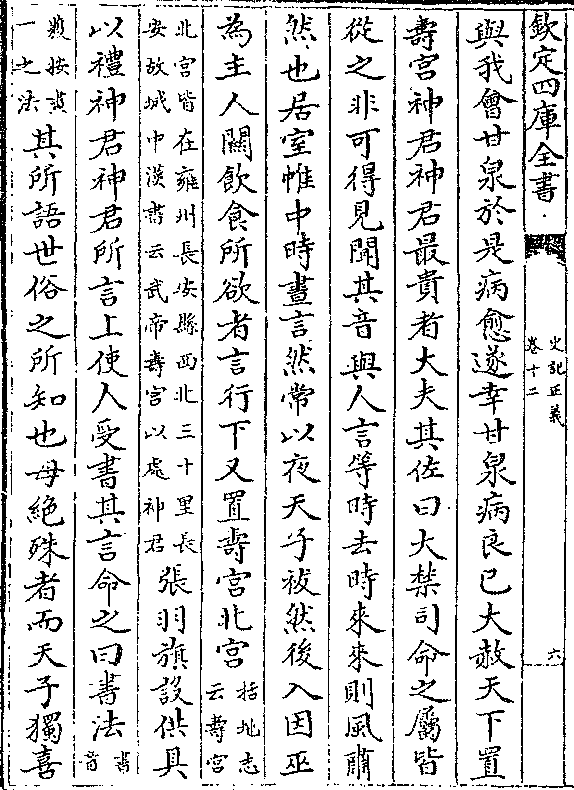 欽定四庫全書
史記正義
卷十二
六
與我會甘泉於是病愈遂幸甘泉病良已大赦天下置
壽宮神君神君最貴者大夫其佐曰大禁司命之屬皆
從之非可得見聞其音與人言等時去時來來則風肅
然也居室帷中時晝言然常以夜天子祓然後入因巫
為主人關飲食所欲者言行下又置壽宮北宮括地志云壽宮
北宮皆在雍州長安縣西北三十里長安故城中漢書云武帝壽宮以處神君張羽旗設供具
以禮神君神君所言上使人受書其言命之曰書法書音
按畫一之法其所語世俗之所知也毋絶殊者而天子獨喜